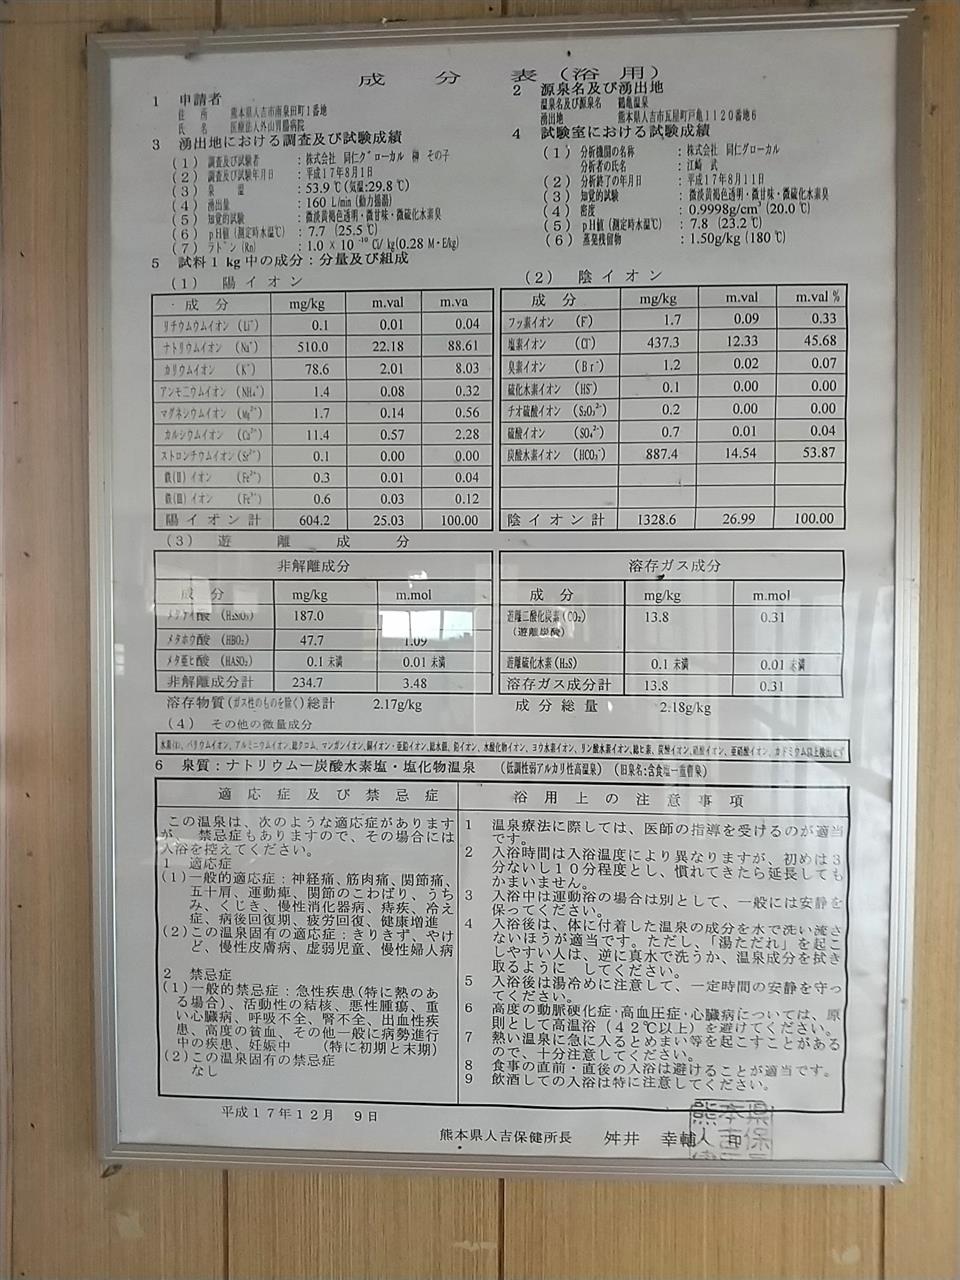 成 分 表（浴 用）
1 申請者
住 所 熊本県人吉市南泉田町1番地
氏 名 医療法人外山胃腸病院
2 源泉名及び湧出地
温泉名及び源泉名 鶴亀温泉
湧出地 熊本県人吉市瓦屋町戸亀1120番地6
3 湧出地における調査及び試験成績
(1) 調査及び試験者 : 株式会社 同仁グローカル 柳 その子
(2) 調査及び試験年月日 : 平成17年8月1日
(3) 泉 温 : 53.9℃(気温:29.8℃)
(4) 湧出量 : 160 L/min (動力揚湯)
(5) 知覚的試験 : 微淡黄褐色透明・微甘味・微硫化水素臭
(6) pH値(測定時水温℃) : 7.7 (25.5℃)
(7) ラドン(Rn) : 1.0 × 10⁻¹⁰ Ci/kg(0.28 M・E/kg)
4 試験室における試験成績
(1) 分析機関の名称 : 株式会社 同仁グローカル
分析者の氏名 : 江崎 武
(2) 分析終了の年月日 : 平成17年8月11日
(3) 知覚的試験 : 微淡黄褐色透明・微甘味・微硫化水素臭
(4) 密度 : 0.9998g/cm³ (20.0℃)
(5) pH値(測定時水温℃) : 7.8 (23.2℃)
(6) 蒸発残留物 : 1.50g/kg (180℃)
5 試料1kg中の成分:分量及び組成
(1) 陽イオン
成 分 mg/kg m.val m.va
リチウムウムイオン (Li⁺) 0.1 0.01 0.04
ナトリウムイオン (Na⁺) 510.0 22.18 88.61
カリウムイオン (K⁺) 78.6 2.01 8.03
アンモニウムイオン (NH₄⁺) 1.4 0.08 0.32
マグネシウムイオン (Mg²⁺) 1.7 0.14 0.56
カルシウムイオン (Ca²⁺) 11.4 0.57 2.28
ストロンチウムイオン (Sr²⁺) 0.1 0.00 0.00
鉄(Ⅱ)イオン (Fe²⁺) 0.3 0.01 0.04
鉄(Ⅲ)イオン (Fe³⁺) 0.6 0.03 0.12
陽イオン計 604.2 25.03 100.00
(2) 陰イオン
成 分 mg/kg m.val m.val %
フッ素イオン (F⁻) 1.7 0.09 0.33
塩素イオン (Cl⁻) 437.3 12.33 45.68
臭素イオン (Br⁻) 1.2 0.02 0.07
硫化水素イオン (HS⁻) 0.1 0.00 0.00
チオ硫酸イオン (S₂O₃²⁻) 0.2 0.00 0.00
硫酸イオン (SO₄²⁻) 0.7 0.01 0.04
炭酸水素イオン (HCO₃⁻) 887.4 14.54 53.87
陰イオン計 1328.6 26.99 100.00
(3) 遊 離 成 分
非解離成分
成 分 mg/kg m.mol
メタケイ酸 (H₂SiO₃) 187.0
メタホウ酸 (HBO₂) 47.7 1.09
メタ亜ヒ酸 (HASO₂) 0.1 未満 0.01 未満
非解離成分計 234.7 3.48
溶存ガス成分
成 分 mg/kg m.mol
遊離二酸化炭素(CO₂) 13.8 0.31
(遊離炭酸)
遊離硫化水素(H₂S) 0.1 未満 0.01 未満
溶存ガス成分計 13.8 0.31
溶存物質(ガス性のものを除く)総計 2.17g/kg 成分総量 2.18g/kg
(4) その他の微量成分
バリウムイオン, アルミニウムイオン, 総クロム, マンガンイオン, 銅イオン・亜鉛イオン, 総水銀, 鉛イオン, 水酸化物イオン, ヨウ素イオン, リン酸水素イオン, 総ヒ素, 炭酸イオン, 硝酸イオン, 亜硝酸イオン, カドミウム以上検出せず
6 泉質:ナトリウムー炭酸水素塩・塩化物温泉 (低調性弱アルカリ性高温泉) (旧泉名:含食塩ー重曹泉)
適応症及び禁忌症
この温泉は、次のような適応症があります
が、 禁忌症もありますので、その場合には
入浴を控えてください。
1 適応症
(1)一般的適応症:神経痛、筋肉痛、関節痛、
五十肩、運動痲、関節のこわばり、うち
み、くじき、慢性消化器病、痔疾、冷え
症、病後回復期、疲労回復、健康増進
(2)この温泉固有の適応症:きりきず、やけ
ど、慢性皮膚病、虚弱児童、慢性婦人病
2 禁忌症
(1)一般的禁忌症:急性疾患(特に熱のあ
る場合)、活動性の結核、悪性腫瘍、重
い心臓病、呼吸不全、腎不全、出血性疾
患、高度の貧血、その他一般に病勢進行
中の疾患、妊娠中 (特に初期と末期)
(2)この温泉固有の禁忌症
なし
浴用上の注意事項
1 温泉療法に際しては、医師の指導を受けるのが適当
です。
2 入浴時間は入浴温度により異なりますが、初めは3
分ないし10分程度とし、慣れてきたら延長しても
かまいません。
3 入浴中は運動浴の場合は別として、一般には安静を
保ってください。
4 入浴後は、体に付着した温泉の成分を水で洗い流さ
ないほうが適当です。ただし、「湯ただれ」を起こ
しやすい人は、逆に真水で洗うか、温泉成分を拭き
取るように してください。
5 入浴後は湯冷めに注意して、一定時間の安静を守っ
てください。
6 高度の動脈硬化症・高血圧症・心臓病については、原
則として高温浴(42℃以上)を避けてください。
7 熱い温泉に急に入るとめまい等を起こすことがある
ので、十分注意してください。
8 食事の直前・直後の入浴は避けることが適当です。
9 飲酒しての入浴は特に注意してください。
平成17年12月 9日
熊本県人吉保健所長 舛井 幸輔
熊本県
人吉保